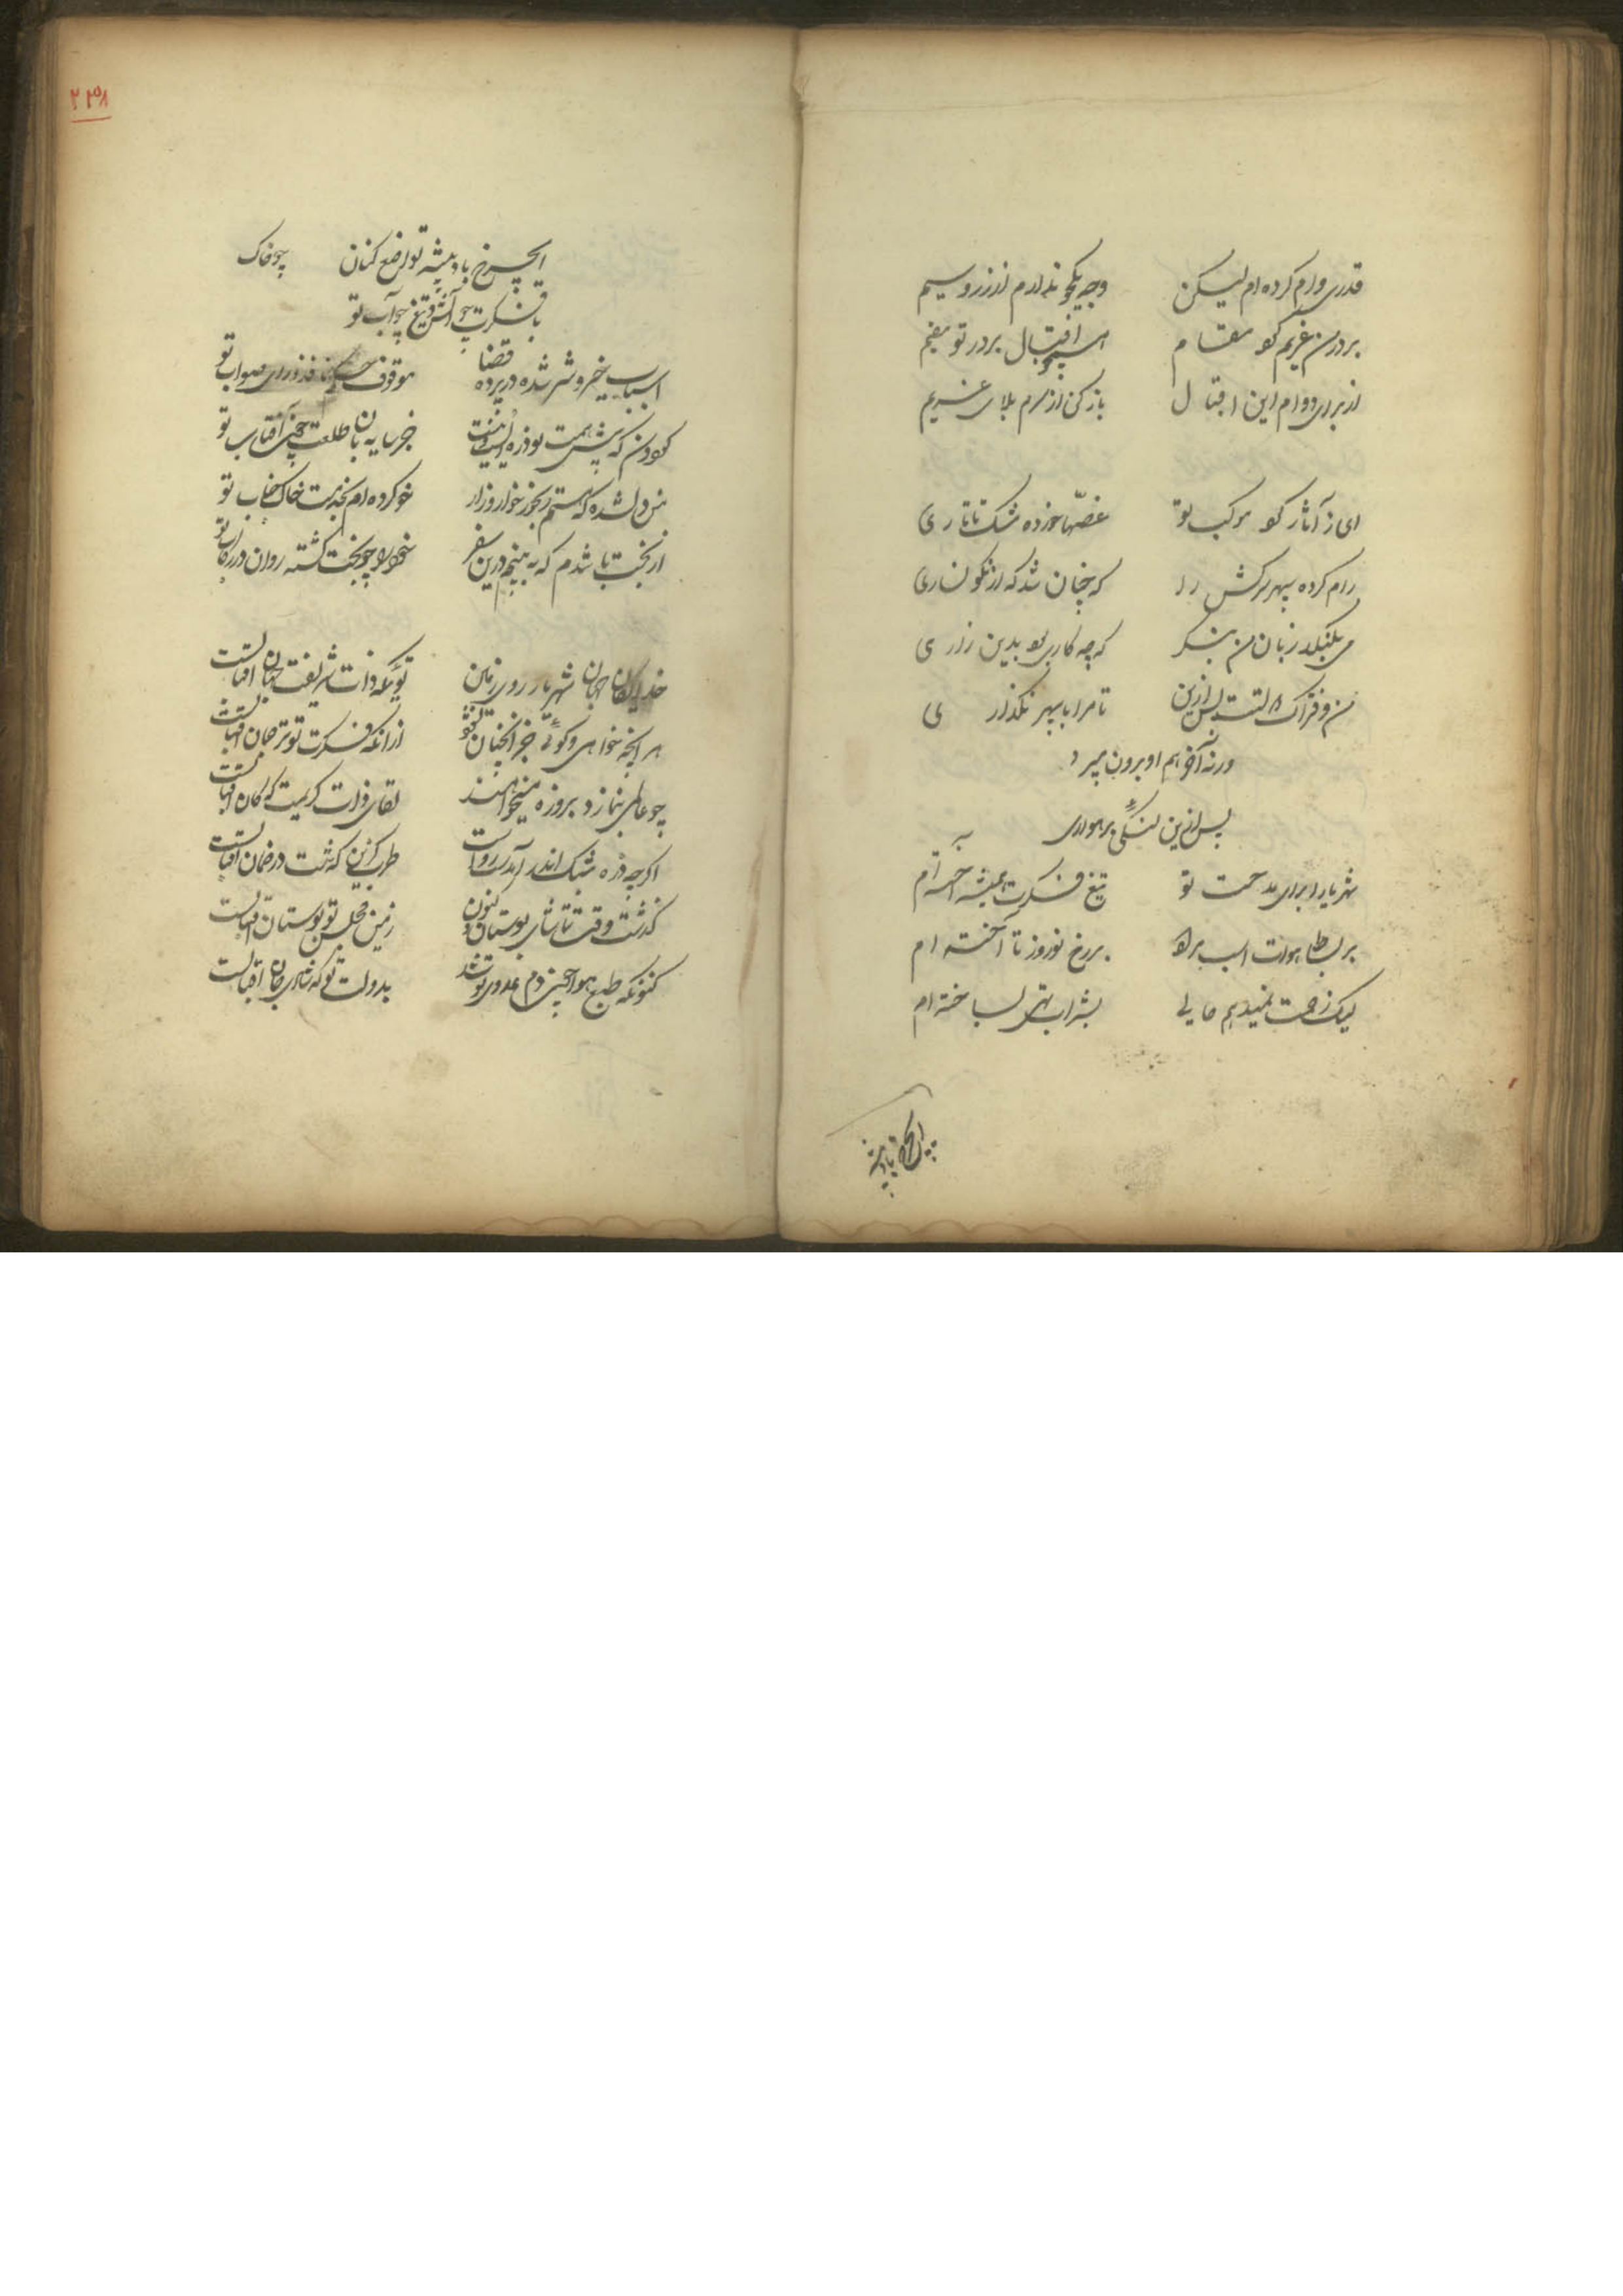 قدری وام کرده ام لیکن وجه یکجو ندارم از زر و سیم
بر در من غریم کو مقام همچو اقبال بر در تو مقیم
از برای دوام این اقبال باز کن از سرم بلای غریم
ای ز آثار کو موکب تو غصّها خورده مشک تاتاری
رام کرده سپهر سرکش را که چنان شد که از نکونساری
زبان من بنگر که چه کاری بو بدین زاری
من و فتراک دولتت پس ازین تا مرا با سپهر نکذاری
ورنه آخر هم او برون میبرد
پس ازین لنگی برهواری
شهریارا برای مدحت تو تیغ فکرت همیشه آخته ام
بر بساط هوات اسب بر رخ نوروز تا آخته ام
لیک زحمت نمیدهم حالی بشراب تهی بساخته ام
ای چرخ باد پیشه
۲۳۸
ای چرخ باد پیشه تواضع کنان چو خاک
با فکرت چو آتش و تیغ چو آب تو
اسباب خیر و شر شده در پرده قضا موقوف حکم نافذ و رای صواب تو
کردون که پیش همت تو ذره نیست جز سایه بان طلعت چون آفتاب تو
من دلشده که هستم رنجور و خوار و زار خو کرده ام بخدمت خاک جناب تو
از بخت تا شدم که نه بینم درین سفر خود را چو بخت کشته روان در رکاب تو
خدایکان جهان شهریار روی زمین تویی که ذات شریفت جهان اقبالست
هر آنچه خواهی و کویی جز آنچنان نشود از آنکه فکرت تو ترجمان اقبالست
چو عالمی بنماز و بروزه میخواهند لقای ذات کریمت که کان اقبالست
اکرچه ذره شبک اندر آمدست رواست طرب کزین که شبت در ضمان اقبالست
کذشت وقت تماشای بوستان کنون زمین مجلس تو بوستان اقبالست
کنونکه طبع هوا چون دم عدوی تو شد بدولت تو که شاهی جهان اقبالست